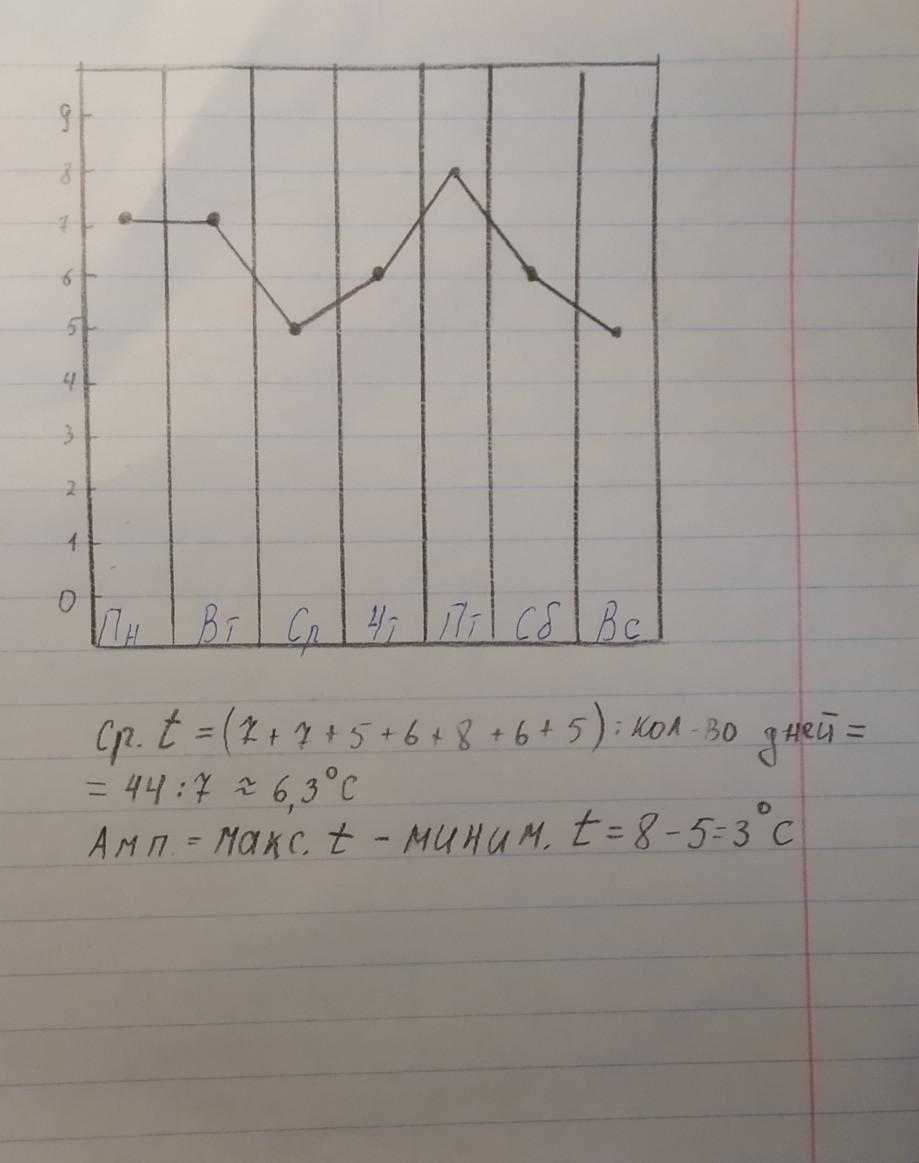 9
8
7
6
5
4
3
2
1
0
Пн Вт Ср Чт Пт Сб Вс
Ср. t = (7 + 7 + 5 + 6 + 8 + 6 + 5) : кол-во дней =
= 44 : 7 ≈ 6,3°C
Амп. = макс. t - миним. t = 8 - 5 = 3°C